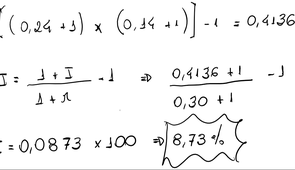 [(0,24 + 1) x (0,14 + 1)] - 1 = 0,4136
I = 1 + I / 1 + r - 1 => 0,4136 + 1 / 0,30 + 1 - 1
= 0,0873 x 100 => 8,73%